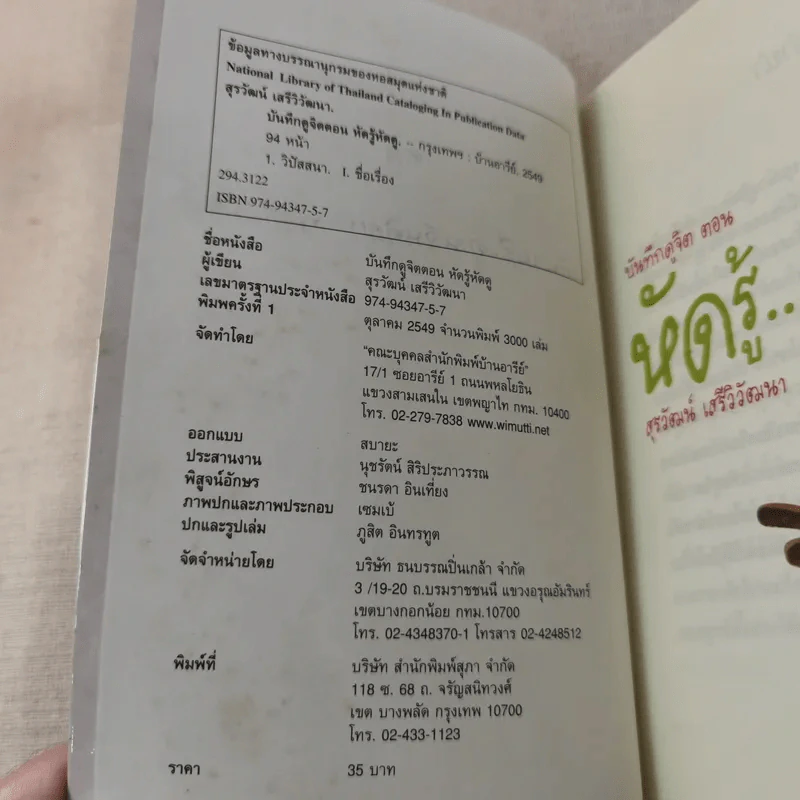 ข้อมูลทางบรรณานุกรมของหอสมุดแห่งชาติ
National Library of Thailand Cataloging In Publication Data
สุรวัฒน์ เสรีวิวัฒนา.
บันทึกดูจิตตอน หัดรู้หัดดู. -- กรุงเทพฯ : บ้านอารีย์, 2549
94 หน้า
1. วิปัสสนา. I. ชื่อเรื่อง
294.3122
ISBN 974-94347-5-7
ชื่อหนังสือ บันทึกดูจิตตอน หัดรู้หัดดู
ผู้เขียน สุรวัฒน์ เสรีวิวัฒนา
เลขมาตรฐานประจำหนังสือ 974-94347-5-7
พิมพ์ครั้งที่ 1 ตุลาคม 2549 จำนวนพิมพ์ 3000 เล่ม
จัดทำโดย "คณะบุคคลสำนักพิมพ์บ้านอารีย์"
17/1 ซอยอารีย์ 1 ถนนพหลโยธิน
แขวงสามเสนใน เขตพญาไท กทม. 10400
โทร. 02-279-7838 www.wimutti.net
ออกแบบ สบายะ
ประสานงาน นุชรัตน์ สิริประภาวรรณ
พิสูจน์อักษร ชนรดา อินเที่ยง
ภาพปกและภาพประกอบ เซมเบ้
ปกและรูปเล่ม ภูสิต อินทรทูต
จัดจำหน่ายโดย บริษัท ธนบรรณปิ่นเกล้า จำกัด
3 /19-20 ถ.บรมราชชนนี แขวงอรุณอัมรินทร์
เขตบางกอกน้อย กทม.10700
โทร. 02-4348370-1 โทรสาร 02-4248512
พิมพ์ที่ บริษัท สำนักพิมพ์สุภา จำกัด
118 ซ. 68 ถ. จรัญสนิทวงศ์
เขต บางพลัด กรุงเทพ 10700
โทร. 02-433-1123
ราคา 35 บาท
บันทึกดูจิต ตอน
หัดรู้..
สุรวัฒน์ เสรีวิวัฒนา